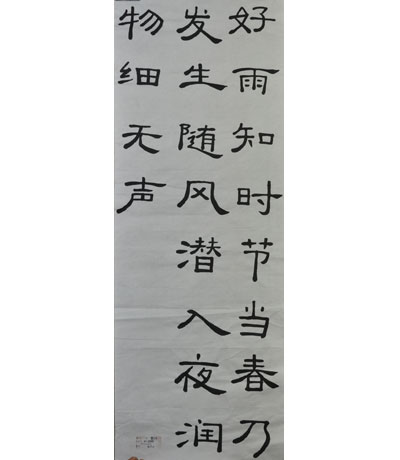 好雨知时节当春乃
发生随风潜入夜润
物细无声